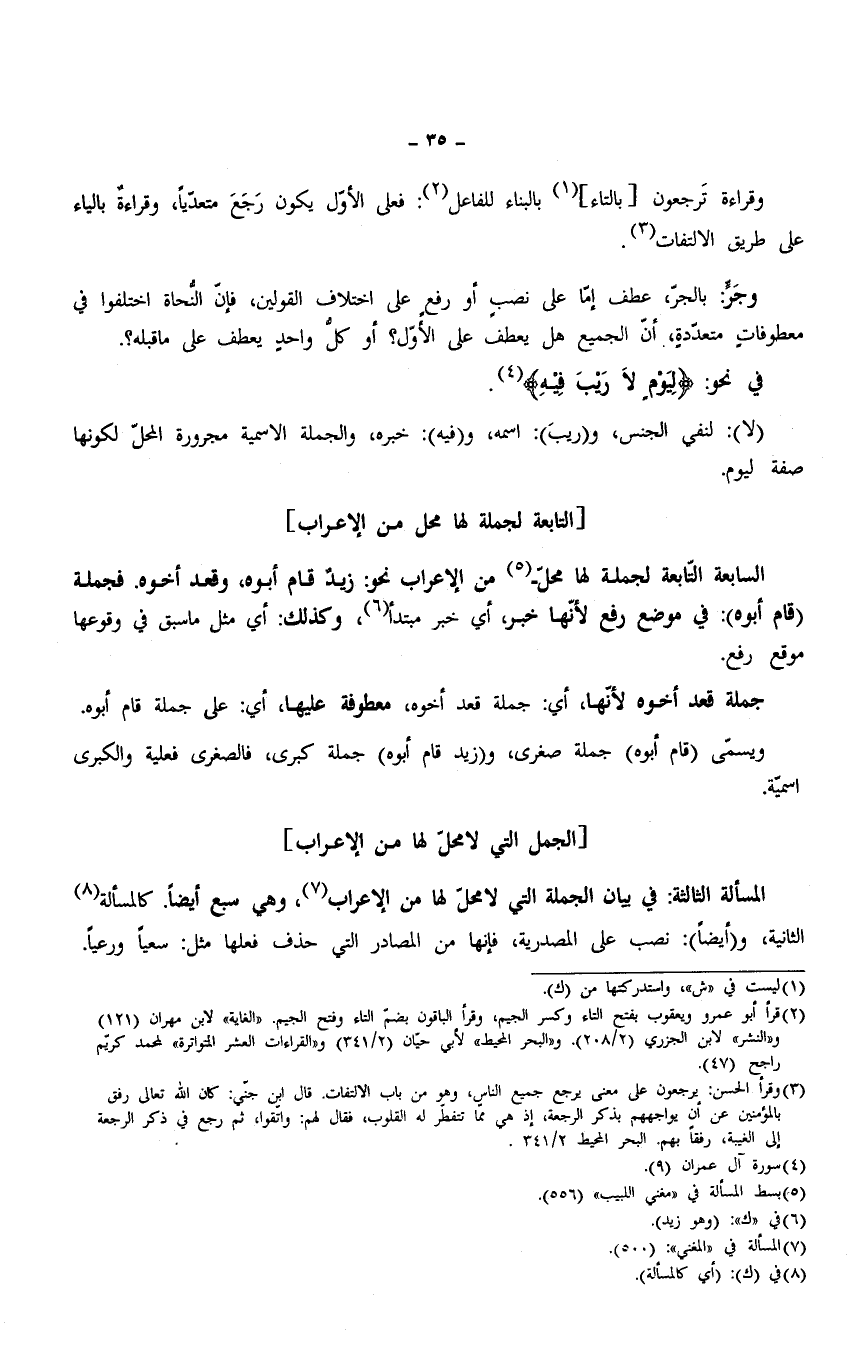 ـ ٣٥ ـ
وقراءة تَرجعون [بالتاء](١) بالبناء للفاعل(٢): فعلى الأوّل يكون رَجَعَ متعدّياً، وقراءةٌ بالياء
على طريق الالتفات(٣).
وجَرٍّ: بالجرّ، عطف إمّا على نصبٍ أو رفعٍ على اختلاف القولين، فإنّ النُّحاة اختلفوا في
معطوفاتٍ متعدّدةٍ، أنّ الجميع هل يعطف على الأوّل؟ أو كلُّ واحدٍ يعطف على ماقبله؟.
في نحو: ﴿لِيَوْمٍ لاَ رَيْبَ فِيْهِ﴾(٤).
(لا): لنفي الجنس، و(ريبَ): اسمه، و(فيه): خبره، والجملة الاسمية مجرورة المحلّ لكونها
صفة ليوم.
[التابعة لجملة لها محل من الإعراب]
السابعة التّابعة لجملة لها محلّ(٥) من الإعراب نحو: زيدٌ قام أبوه، وقعد أخوه. فجملة
(قام أبوه): في موضع رفع لأنّها خبر، أي خبر مبتدأ(٦)، وكذلك: أي مثل ماسبق في وقوعها
موقع رفع.
جملة قعد أخوه لأنّها، أي: جملة قعد أخوه، معطوفة عليها، أي: على جملة قام أبوه.
ويسمّى (قام أبوه) جملة صغرى، و(زيد قام أبوه) جملة كبرى، فالصغرى فعلية والكبرى
اسميّة.
[الجمل التي لامحلّ لها من الإعراب]
المسألة الثالثة: في بيان الجملة التي لامحلّ لها من الإعراب(٧)، وهي سبع أيضاً. كالمسألة(٨)
الثانية، و(أيضاً): نصب على المصدرية، فإنها من المصادر التي حذف فعلها مثل: سعياً ورعياً.
(١) ليست في «ش»، واستدركتها من (ك).
(٢) قرأ أبو عمرو ويعقوب بفتح التاء وكسر الجيم، وقرأ الباقون بضمّ التاء وفتح الجيم. «الغاية» لابن مهران (١٢١)
و«النشر» لابن الجزري (٢٠٨/٢). و«البحر المحيط» لأبي حيّان (٣٤١/٢) و«القراءات العشر المتواترة» لمحمد كريّم
راجح (٤٧).
(٣) وقرأ الحسن: يرجعون على معنى يرجع جميع الناس، وهو من باب الالتفات. قال ابن جنّي: كان الله تعالى رفق
بالمؤمنين عن أن يواجههم بذكر الرجعة، إذ هي ممّا تنفطّر له القلوب، فقال لهم: واتّقوا، ثم رجع في ذكر الرجعة
إلى الغيبة، رفقاً بهم. البحر المحيط ٣٤١/٢ .
(٤) سورة آل عمران (٩).
(٥) بسط المسألة في «مغني اللبيب» (٥٥٦).
(٦) في «ك»: (وهو زيد).
(٧) المسألة في «المغني»: (٥٠٠).
(٨) في (ك): (أي كالمسألة).